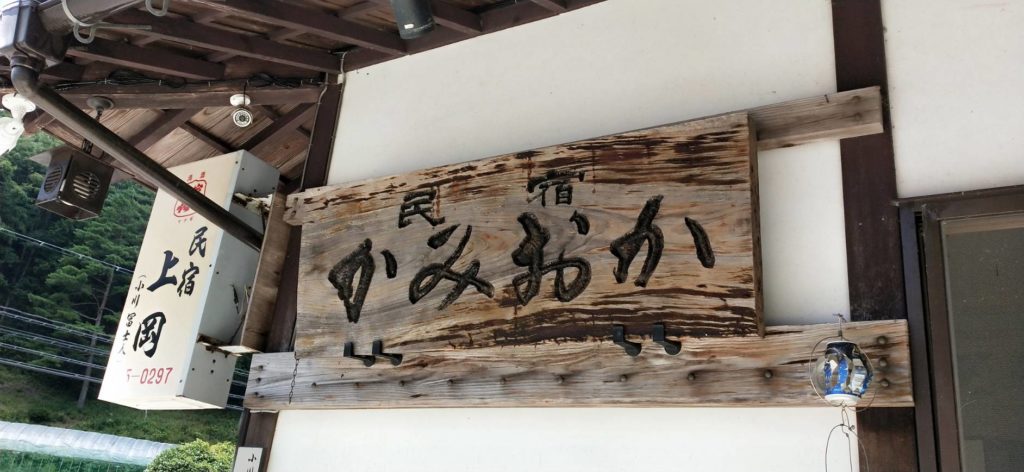 民宿
かみおか
民宿
上岡
(小川冨士人)
5-0297
小川